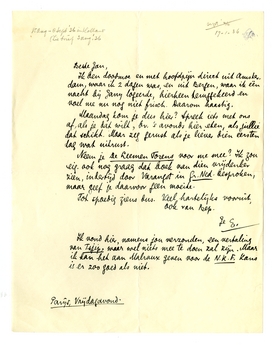 Beste Jan,
Ik ben doodmoe en met hoofdpijn direct uit Amster-
dam, waar ik 2 dagen was, en uit Bergen, waar ik een
nacht bij Jany logeerde, hierheen
voel me nu nog niet frisch. Daarom haastig.
Maandag kom je dus hier? Spreek iets met ons
af, als je hik wilt, bv. 's avonds hier eten, als jullie
dat schikt. Maar zeg gerust als je liever bien, eersten
dag wat uitrust.
Neem je De Leemen Torens voor me mee? Ik zou
eig. ook nog graag dat boek van drie vrientjes
zien, inkertijd door Varangot in Gr. Ned. besproken,
maar geef je daarvoor geen moeite.
Tot spoedig ziens dus. Veel hartelijks vooruit,
ook van Bep.
Je E.
Ik vond hier, namens jou verzonden, een vertaling
van waar wel niets mee te doen zal zijn. Maar
ik dan het aan Malraux geven voor de N.R.F. Kans
is er zoo goed als niet.
Parijs, Vrijdagavond.